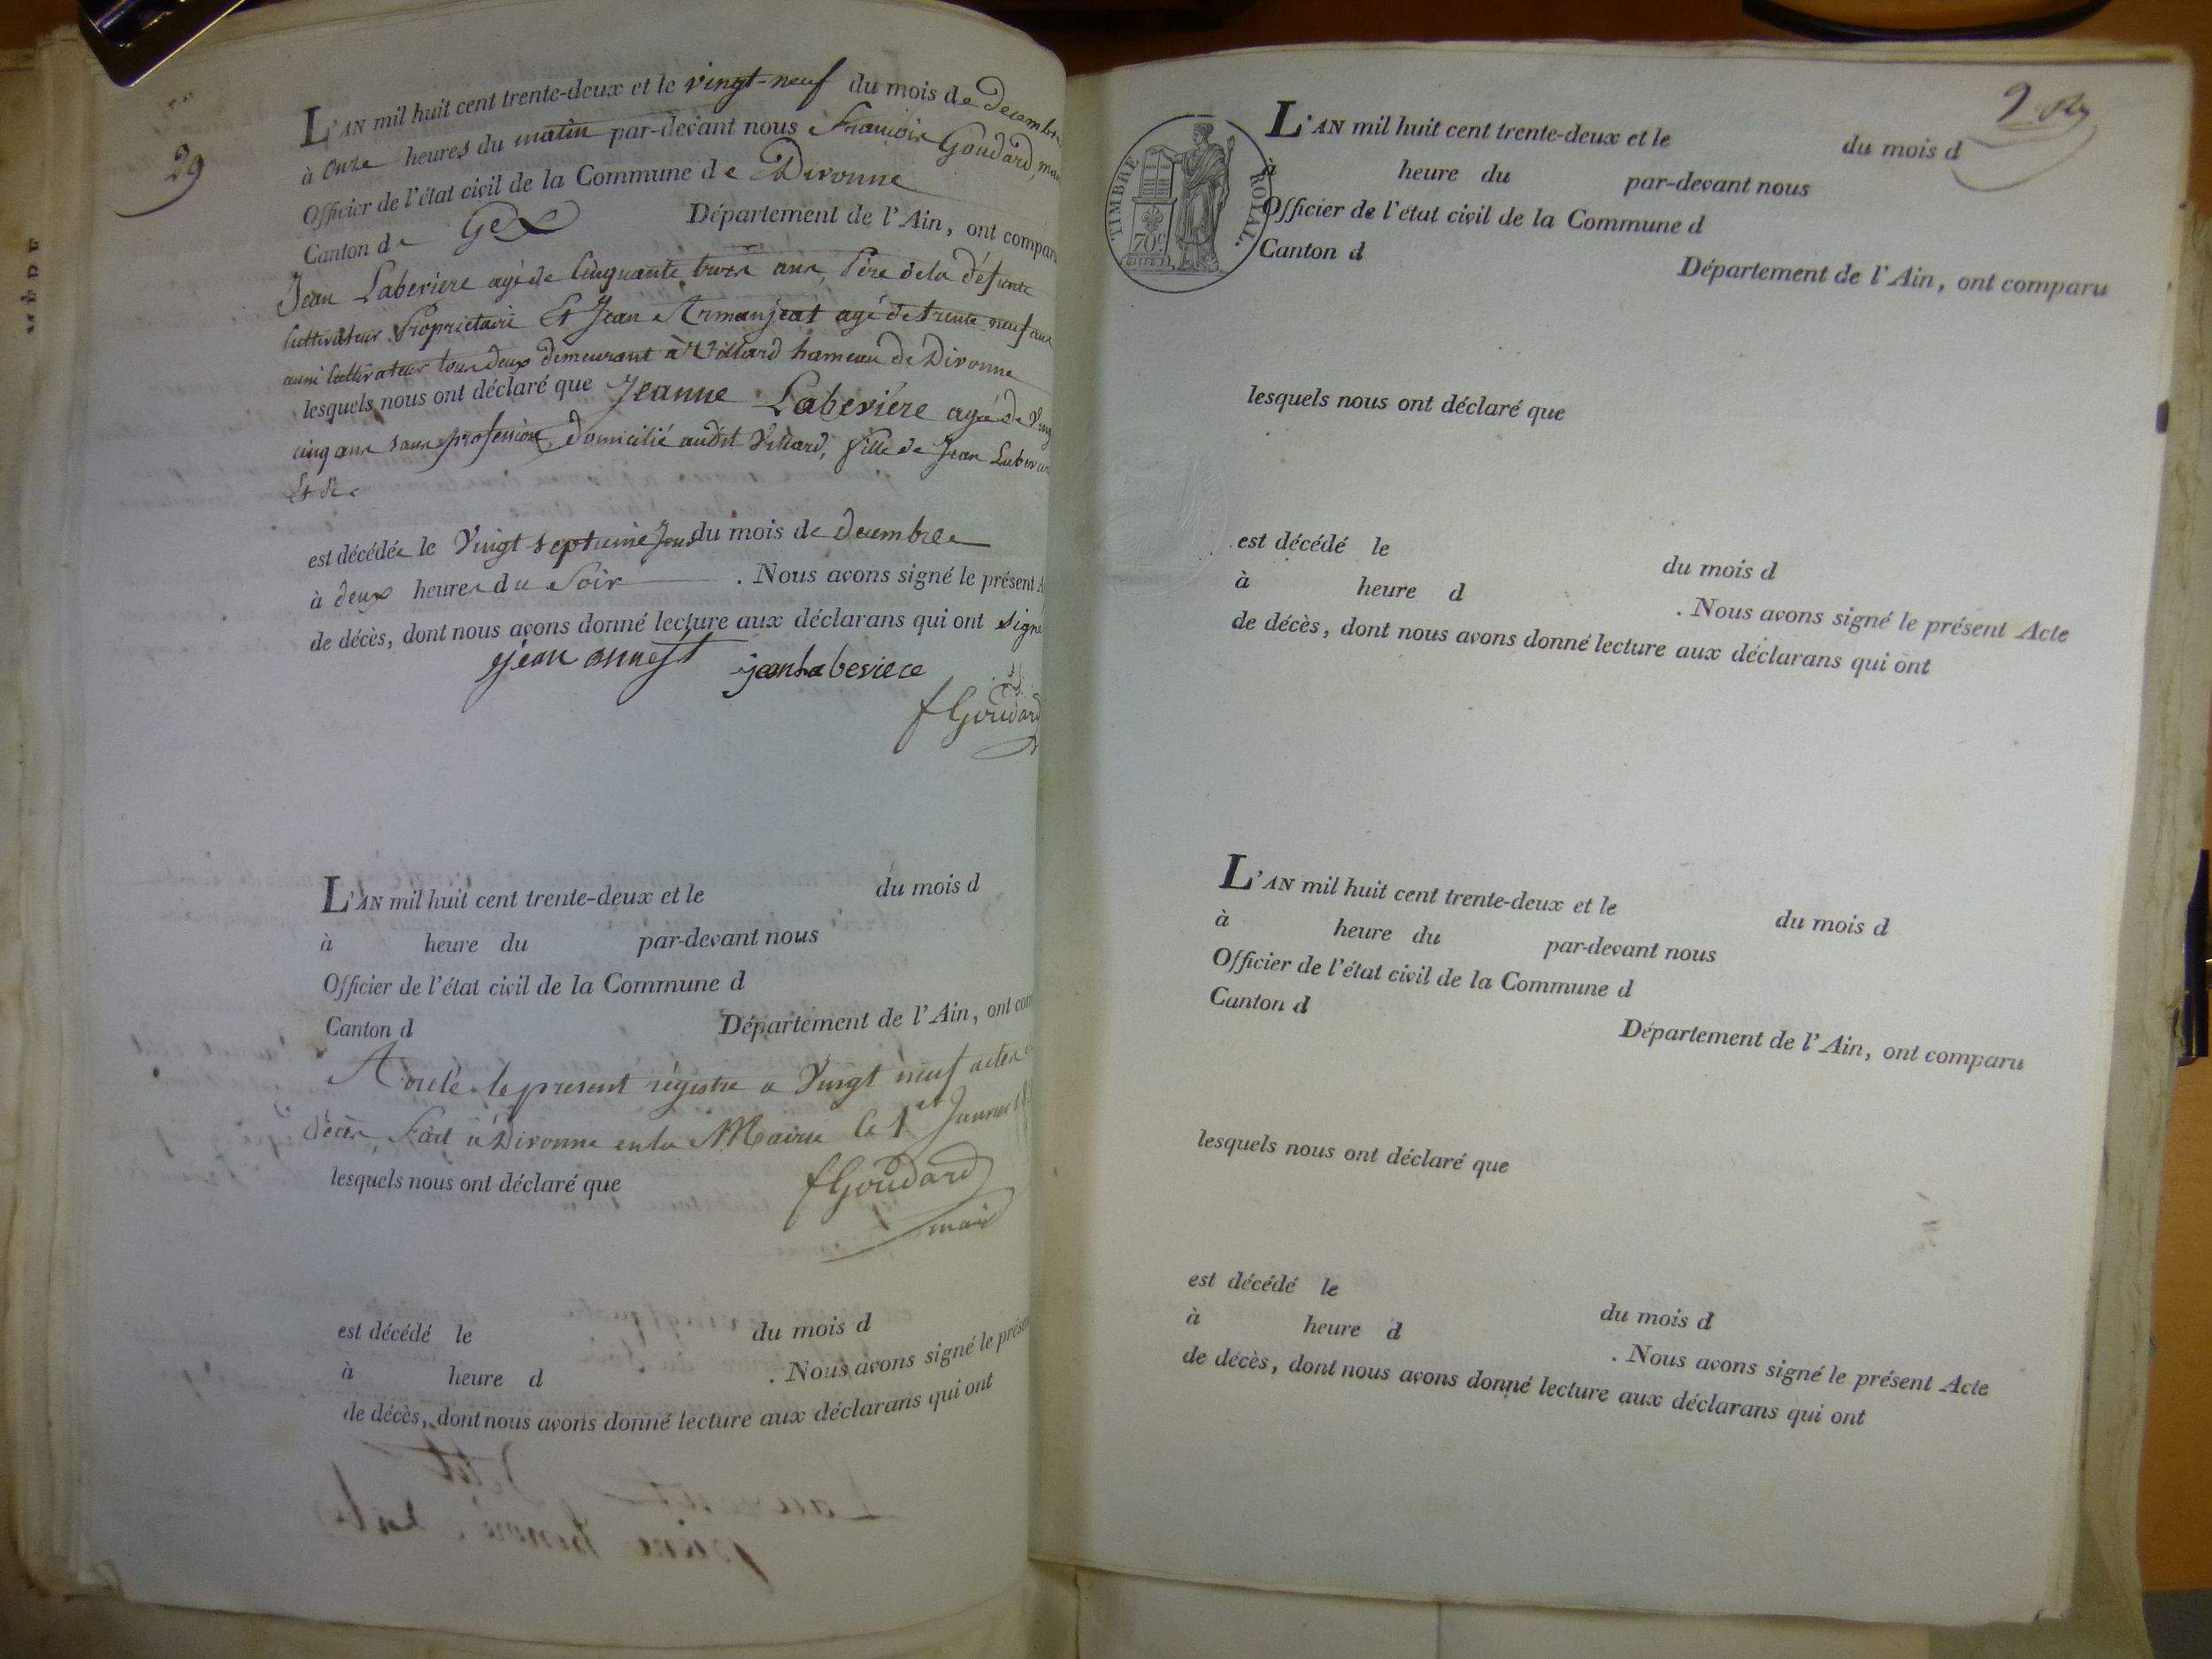 29
L'AN mil huit cent trente-deux et le vingt-neuf du mois de Decembre
à onze heures du matin par-devant nous François Goudard, mai
Officier de l'état civil de la Commune de Divonne
Canton de Gex Département de l'Ain, ont compar
Jean Laberiere agé de Cinquante trois ans, Père de la défunte
Cultivateur Proprietaire Et Jean Armanjeat agé de trente neuf ans
aussi Cultivateur tous deux demeurant à Villard hameau de Divonne
lesquels nous ont déclaré que Jeanne Laberiére agé de Vingt
cinq ans sans profession, domicilié audit Villard, fille de Jean Laberiere
Et de
est décédée le Vingt septieme Jour du mois de decembre
à deux heures du Soir . Nous avons signé le présent A
de décès, dont nous avons donné lecture aux déclarans qui ont signé
jean jean Laberiere
f Goudard
L'AN mil huit cent trente-deux et le du mois d
à heure du par-devant nous
Officier de l'état civil de la Commune d
Canton d Département de l'Ain, ont com
Arreté le present régistre a Vingt neuf actes de
décès, Fait à Divonne en la Mairie le 1er Janvier 18
lesquels nous ont déclaré que f Goudard
maire
est décédé le du mois d
à heure d . Nous avons signé le prése
de décès, dont nous avons donné lecture aux déclarans qui ont
TIMBRE ROYAL.
70c
L'AN mil huit cent trente-deux et le du mois d
à heure du par-devant nous
Officier de l'état civil de la Commune d
Canton d Département de l'Ain, ont comparu
lesquels nous ont déclaré que
est décédé le du mois d
à heure d . Nous avons signé le présent Acte
de décès, dont nous avons donné lecture aux déclarans qui ont
L'AN mil huit cent trente-deux et le du mois d
à heure du par-devant nous
Officier de l'état civil de la Commune d
Canton d Département de l'Ain, ont comparu
lesquels nous ont déclaré que
est décédé le du mois d
à heure d . Nous avons signé le présent Acte
de décès, dont nous avons donné lecture aux déclarans qui ont